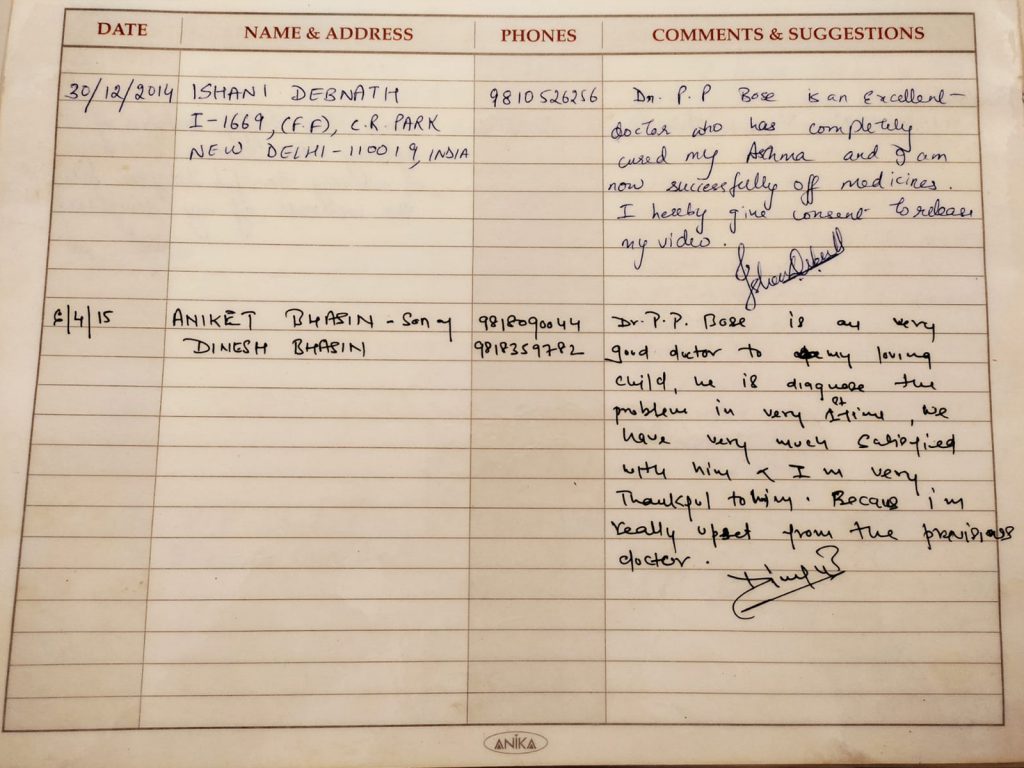 DATE NAME & ADDRESS PHONES COMMENTS & SUGGESTIONS
30/12/2014 ISHANI DEBNATH 9810526256 Dr. P.P Bose is an Excellent
I-1669, (F.F), C.R. PARK doctor who has completely
NEW DELHI-110019, INDIA cured my Asthma and I am
now successfully off medicines.
I hereby give consent to release
my video.
/4/15 ANIKET BHASIN - Son of 9818090044 Dr. P.P. Bose is an very
DINESH BHASIN 9818359782 good doctor to my loving
child, he is diagnose the
problem in very 1st time, we
have very much Satisfied
with him & I m very
Thankful to him. Becaus i'm
really upset from the
doctor.
ANIKA